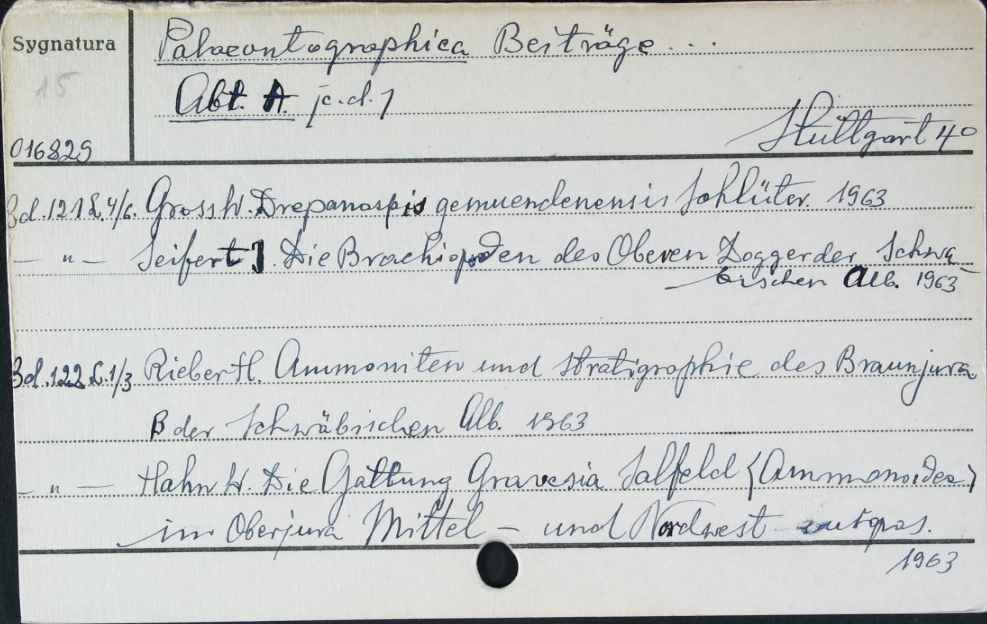 Sygnatura
15
016829
Palaeontographica Beiträge...
Abt. A /c.d./
Stuttgart 4°
Bd. 121 L. 4/6. Gross W. Drepanaspis gemuendenensis Schlüter. 1963
— " — Seifert J. Die Brachiopoden des Oberen Dogger der Schwä-
bischen Alb. 1963
Bd. 122 L. 1/3 Rieber H. Ammoniten und Stratigraphie des Braunjura
β der Schwäbischen Alb. 1963
— " — Hahn W. Die Gattung Gravesia Salfeld (Ammonoidea)
im Oberjura Mittel - und Nordwest-
1963